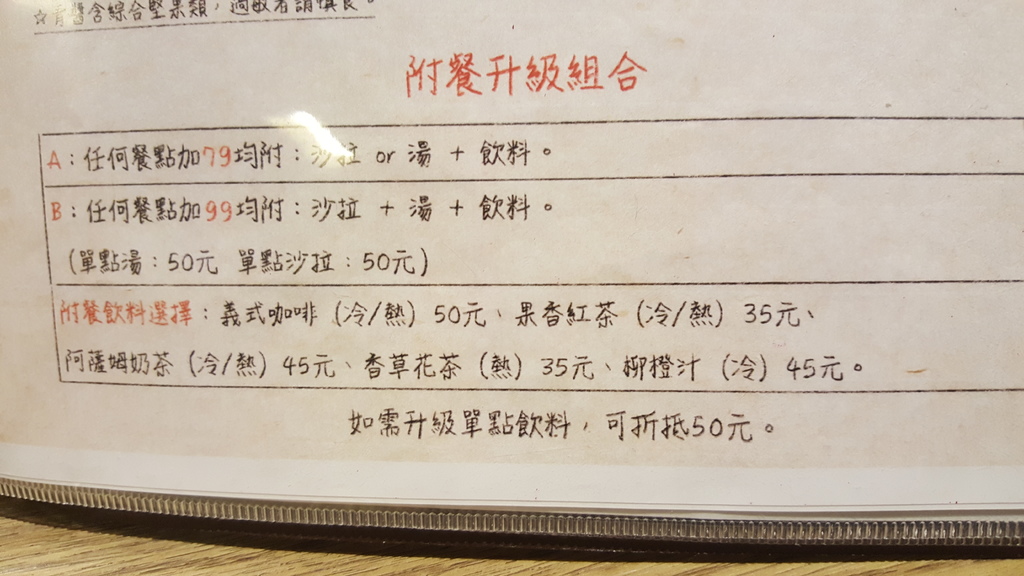 ☆青醬含綜合堅果類，過敏者請慎食。
附餐升級組合
A：任何餐點加79均附：沙拉 or 湯 + 飲料。
B：任何餐點加99均附：沙拉 + 湯 + 飲料。
(單點湯：50元 單點沙拉：50元)
附餐飲料選擇：義式咖啡（冷/熱）50元、果香紅茶（冷/熱）35元、
阿薩姆奶茶（冷/熱）45元、香草花茶（熱）35元、柳橙汁（冷）45元。
如需升級單點飲料，可折抵50元。